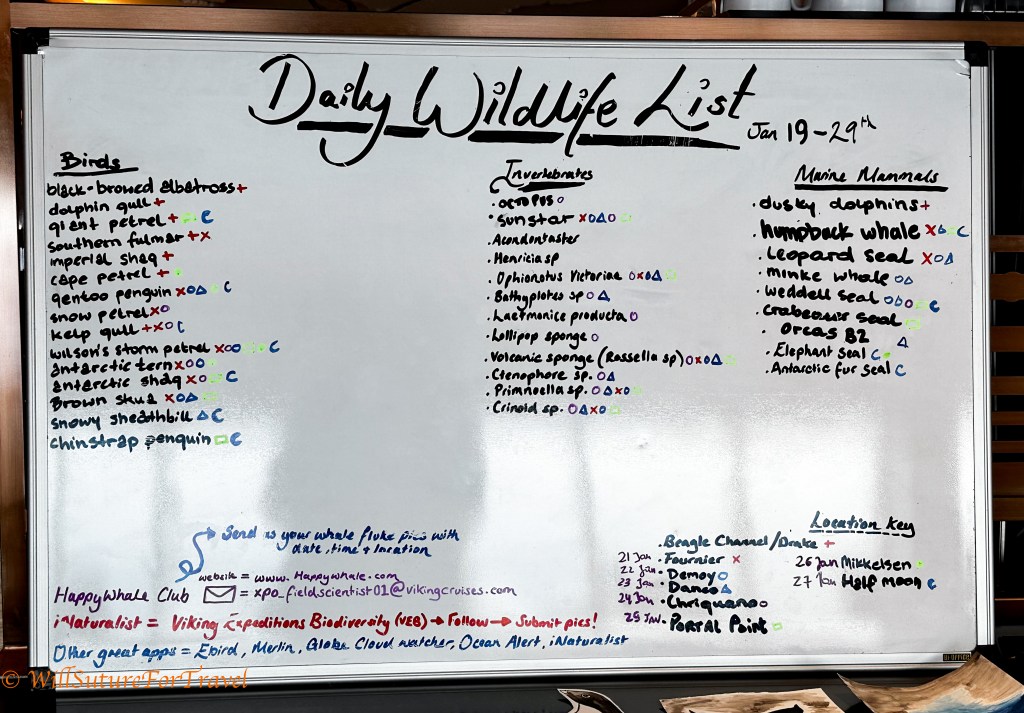 Daily Wildlife List
Jan 19-29th
Birds
black-browed albatross+
dolphin gull +
giant petrel +
southern fulmar +x
imperial shag +
cape petrel +
gentoo penguin xoΔ C
snow petrel xo
kelp gull +xo C
wilson's storm petrel xoo C
antarctic tern xoo
antarctic shag xo C
Brown skua xoΔ
snowy sheathbill Δ C
chinstrap penguin □ C
Invertebrates
· octopus o
· sunstar xoΔo
· Acondontaster
· Henricia sp
· Ophionotus Victoriae oxoΔ
· Bathyplotes sp o Δ
· Laetmonice producta o
· Lollipop sponge o
· Volcanic sponge (Rassella sp) oxoΔ
· Ctenophore sp. oΔ
· Primnoella sp. oΔxo
· Crinoid sp. oΔxo
Marine Mammals
· dusky dolphins+
· humpback whale x C
· Leopard seal xoΔ
· minke whale oΔ
· weddell seal C
· crabeater seal
· Orcas B2 Δ
· Elephant seal C
· Antarctic fur seal C
Send us your whale fluke pics with
date, time + location
website = www.Happywhale.com
HappyWhale Club = xpo_fieldscientist01@vikingcruises.com
iNaturalist = Viking Expeditions Biodiversity (VEB) → Follow → Submit pics!
Other great apps = Ebird, Merlin, Globe Cloud watcher, Ocean Alert, iNaturalist
Location Key
· Beagle Channel/Drake +
21 Jan · Fournier x
22 Jan · Demoy o
23 Jan · Danco Δ
24 Jan · Chiriguano o
25 Jan · PORTAL Point □
26 Jan Mikkelsen
27 Jan Half moon C
© WillSutureForTravel